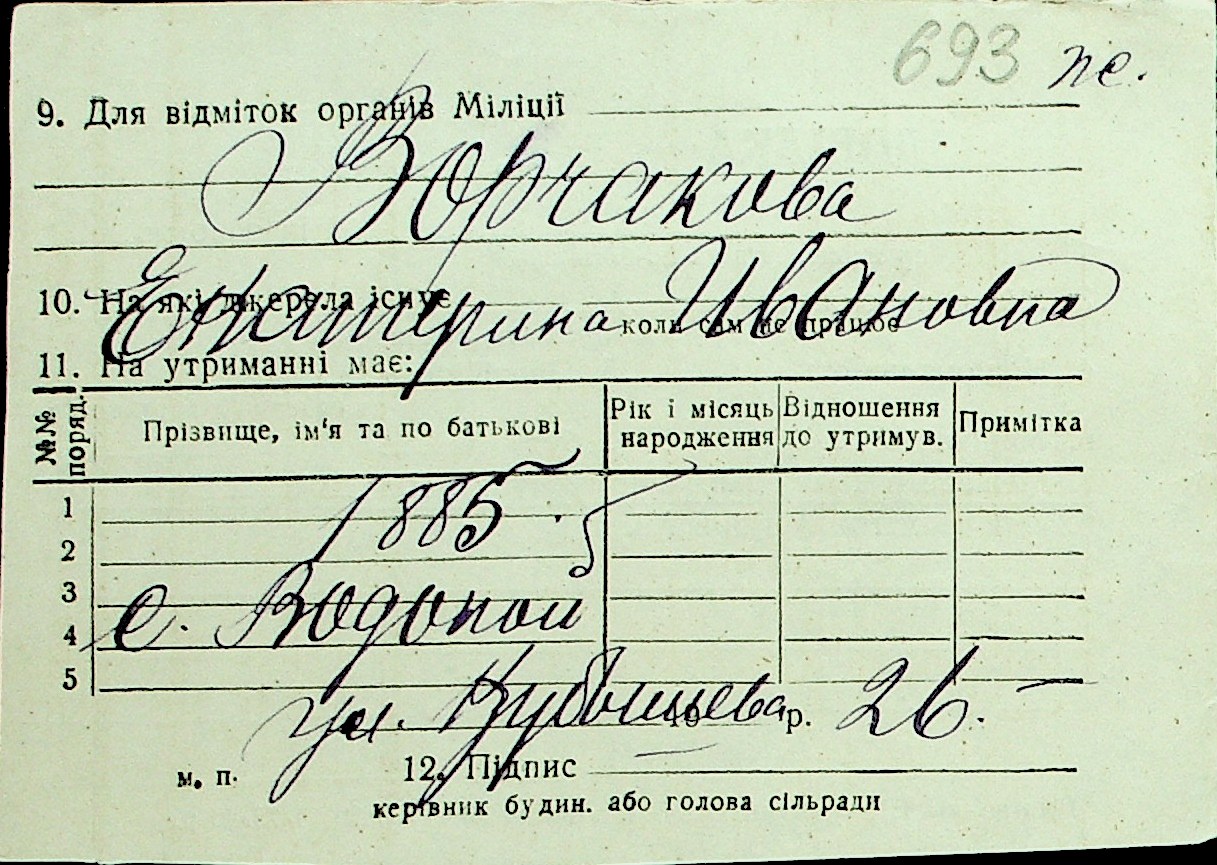 693 пе.
9. Для відміток органів Міліції
Ворчакова
Екатерина Ивановна
10. На які джерела існує
коли сам не працює
11. На утриманні має:
№№ поряд. Прізвище, ім'я та по батькові Рік і місяць народження Відношення до утримув. Примітка
1 1885 г.
2
3 с. Водопой
4
5
ул. Кубышева 26.
19 р.
м. п. 12. Підпис
керівник будин. або голова сільради